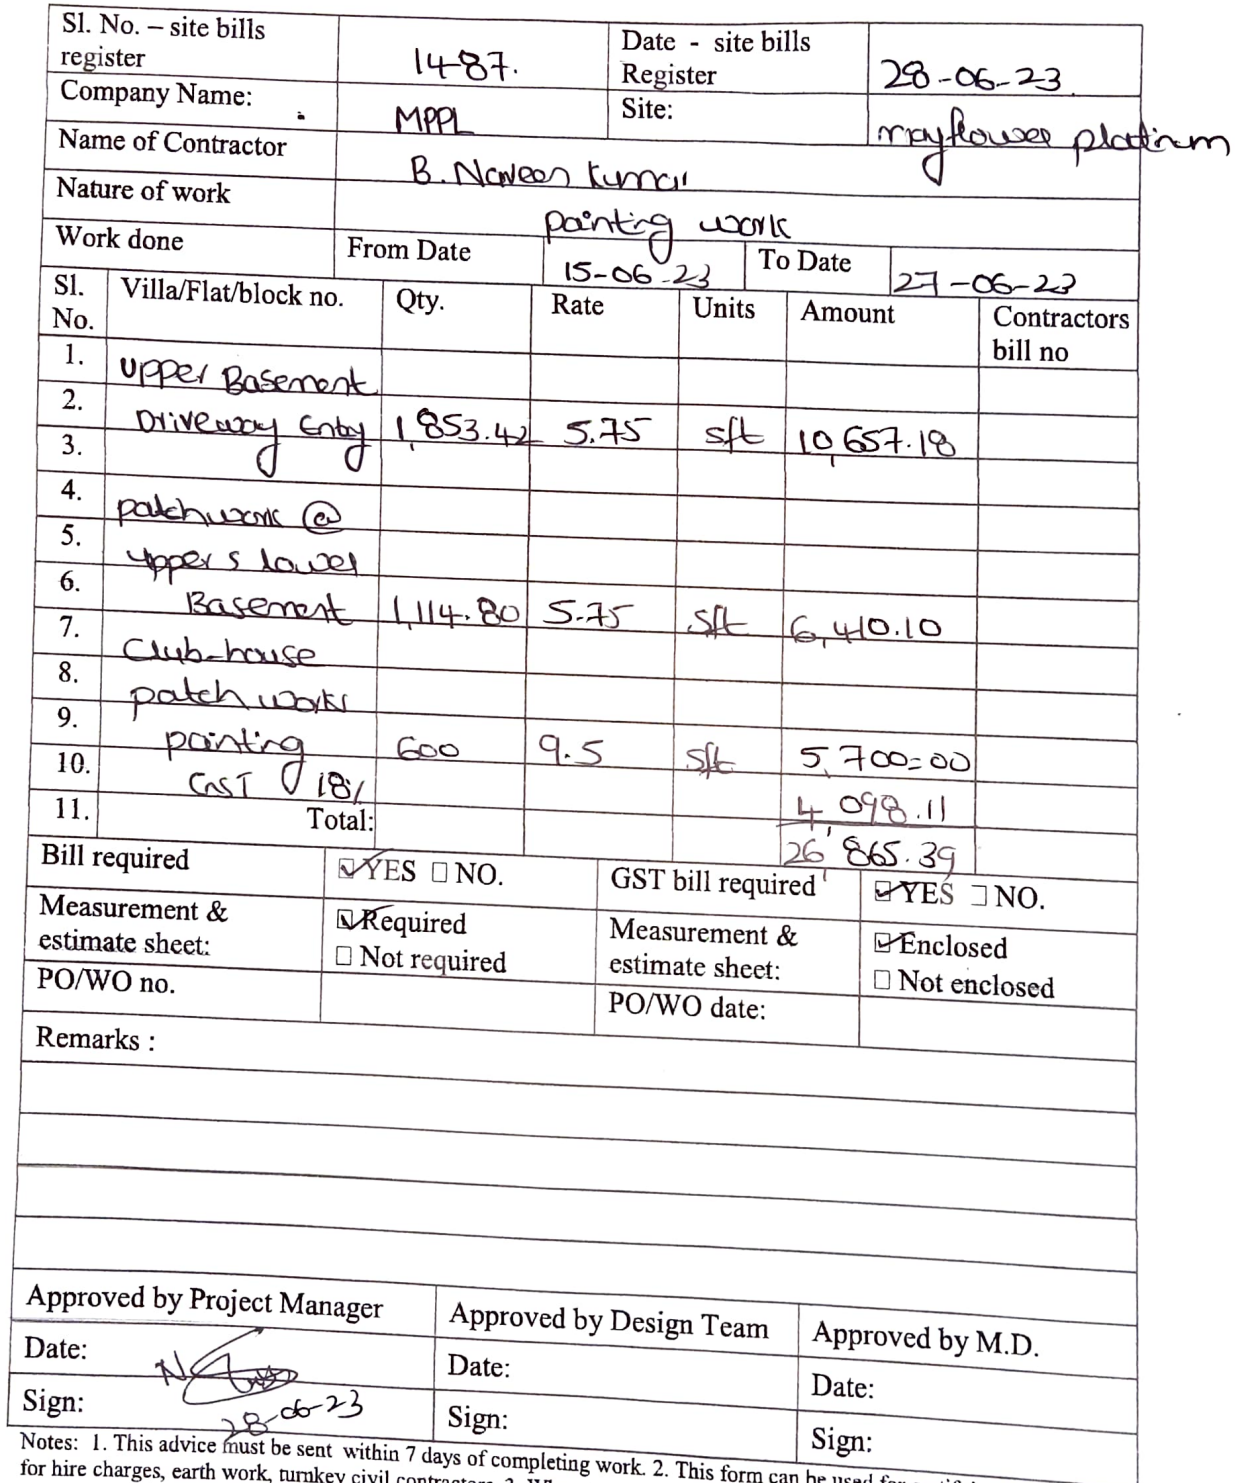 Sl. No. – site bills register 1487. Date - site bills Register 28-06-23
Company Name: MPPL Site: mayflower platinum
Name of Contractor B. Naveen Kumar
Nature of work painting work
Work done From Date 15-06-23 To Date 27-06-23
Sl. No. Villa/Flat/block no. Qty. Rate Units Amount Contractors bill no
1. upper Basement
2. Driveway Entry 1,853.42 5.75 sft 10,657.18
3.
4. patchwork @
5. upper & lower
6. Basement 1,114.80 5.75 sft 6,410.10
7. Club-house
8. patch works
9. painting 600 9.5 sft 5,700=00
10. GST 18% 4,098.11
11. Total: 26,865.39
Bill required ☑ YES □ NO. GST bill required ☑ YES □ NO.
Measurement & estimate sheet: ☑ Required □ Not required Measurement & estimate sheet: ☑ Enclosed □ Not enclosed
PO/WO no. PO/WO date:
Remarks :
Approved by Project Manager Approved by Design Team Approved by M.D.
Date: Date: Date:
Sign: 28-06-23 Sign: Sign:
Notes: 1. This advice must be sent within 7 days of completing work. 2. This form can be used for
for hire charges, earth work, turnkey civil